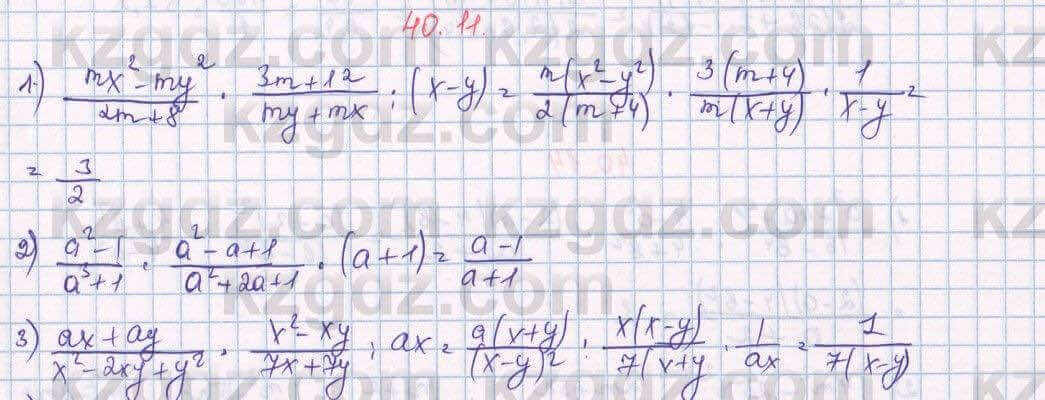 40.11.
1) (mx² - my²)/(2m+8) · (3m+12)/(my+mx) : (x-y) = m(x²-y²)/2(m+4) · 3(m+4)/m(x+y) · 1/(x-y) =
= 3/2
2) (a²-1)/(a³+1) · (a²-a+1)/(a²+2a+1) · (a+1) = (a-1)/(a+1)
3) (ax+ay)/(x²-2xy+y²) · (x²-xy)/(7x+7y) : ax = a(x+y)/(x-y)² : x(x-y)/7(x+y · 1/ax = 1/7(x-y)
kzgdz.com kzgdz.com kz
kzgdz.com kzgdz.com kz
kzgdz.com kzgdz.com kz
kzgdz.com